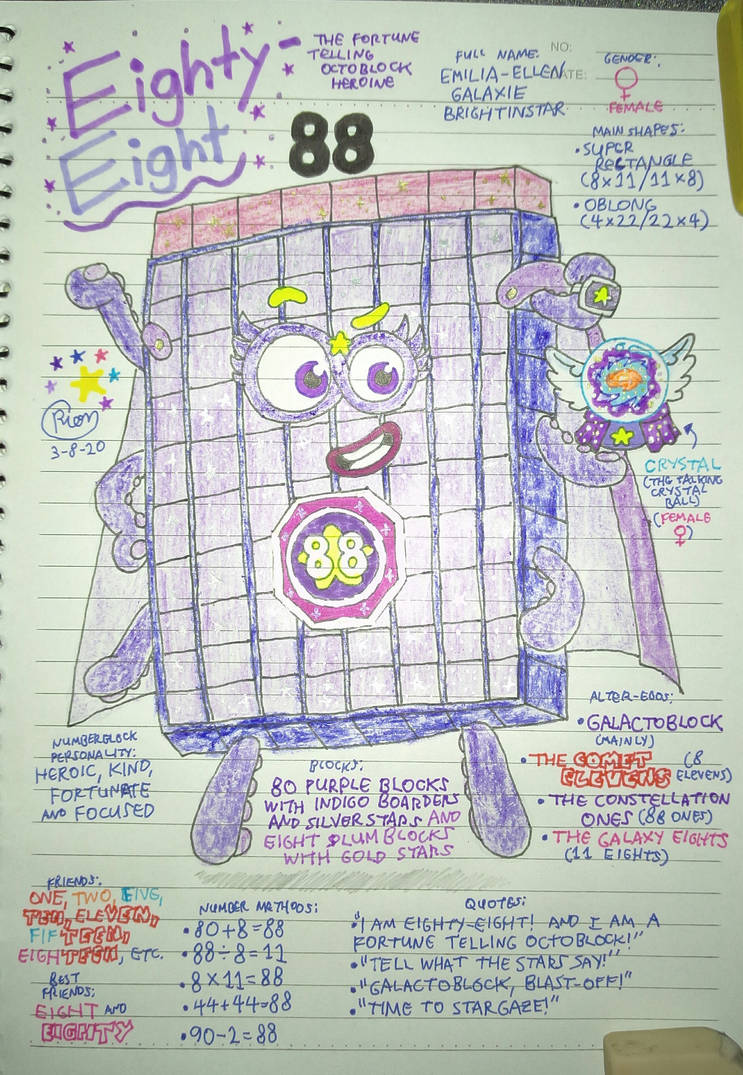 Eighty-
Eight
THE FORTUNE
TELLING
OCTOBLOCK
HEROINE
88
FULL NAME:
EMILIA-ELLEN
GALAXIE
BRIGHTINSTAR
NO:
ATE:
GENDER:
♀
FEMALE
MAIN SHAPES:
• SUPER
RECTANGLE
(8×11/11×8)
• OBLONG
(4×22/22×4)
Rion
3-8-20
CRYSTAL
(THE TALKING
CRYSTAL
BALL)
(FEMALE
♀)
88
NUMBERBLOCK
PERSONALITY:
HEROIC, KIND,
FORTUNATE
AND FOCUSED
BLOCKS:
80 PURPLE BLOCKS
WITH INDIGO BOARDERS
AND SILVER STARS AND
EIGHT PLUM BLOCKS
WITH GOLD STARS
ALTER-EGOS:
• GALACTOBLOCK
(MAINLY)
• THE COMET
ELEVENS (8
ELEVENS)
• THE CONSTELLATION
ONES (88 ONES)
• THE GALAXY EIGHTS
(11 EIGHTS)
FRIENDS:
ONE, TWO, FIVE,
TEN, ELEVEN,
FIFTEEN,
EIGHTEEN, ETC.
BEST
FRIENDS:
EIGHT AND
EIGHTY
NUMBER METHODS:
• 80+8=88
• 88÷8=11
• 8×11=88
• 44+44=88
• 90-2=88
QUOTES:
• "I AM EIGHTY-EIGHT! AND I AM A
FORTUNE TELLING OCTOBLOCK!"
• "TELL WHAT THE STARS SAY!"
• "GALACTOBLOCK, BLAST-OFF!"
• "TIME TO STARGAZE!"